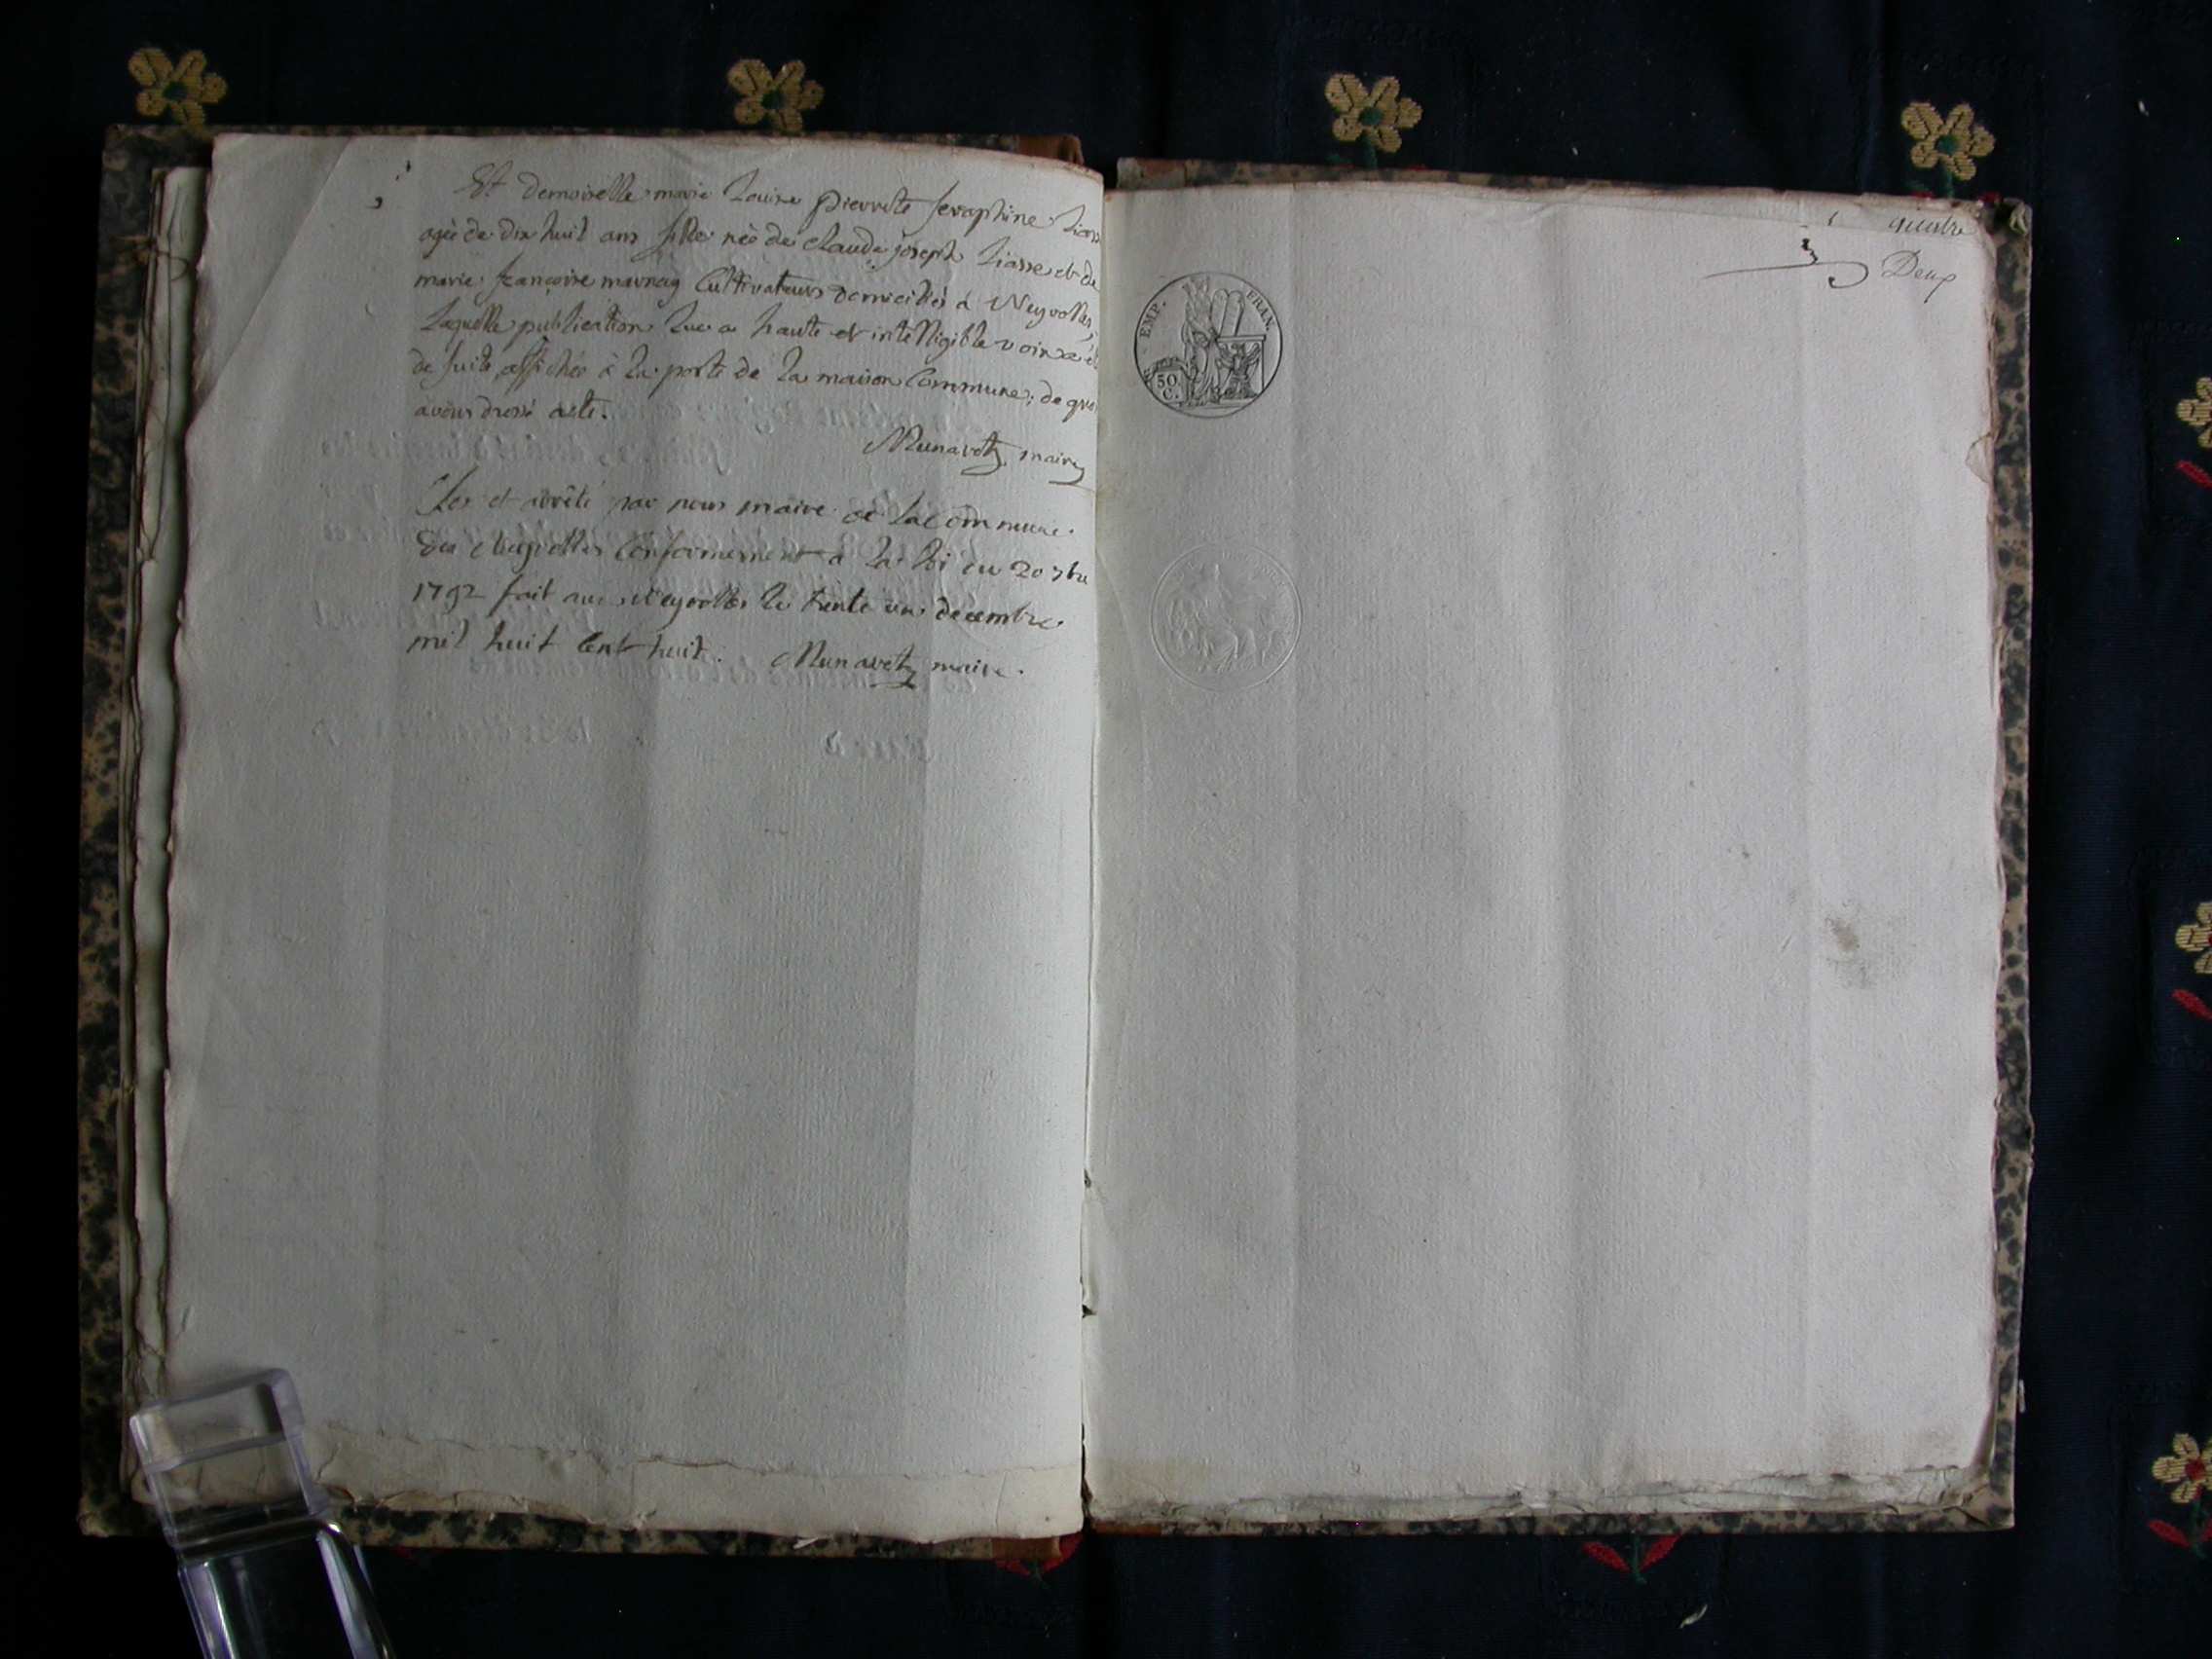 Et demoiselle marie Louise pierrette seraphine Liasse
agée de dix huit ans fille née de claude joseph Liasse et de
marie françoise cultivateurs domiciliés a Neyrolles,
Laquelle publication lue a haute et intelligible voix a été
de suite affichée à la porte de la maison Commune; de quoi
avons dressé acte.
Munavet maire
Clos et arrêté par nous maire de la Commune
des Neyrolles Conformement a la loi du 20 7bre
1792 fait aux Neyrolles le trente un decembre
mil huit cent huit. Munavet maire.
quatre
Deux
EMP. FRAN.
50
C.